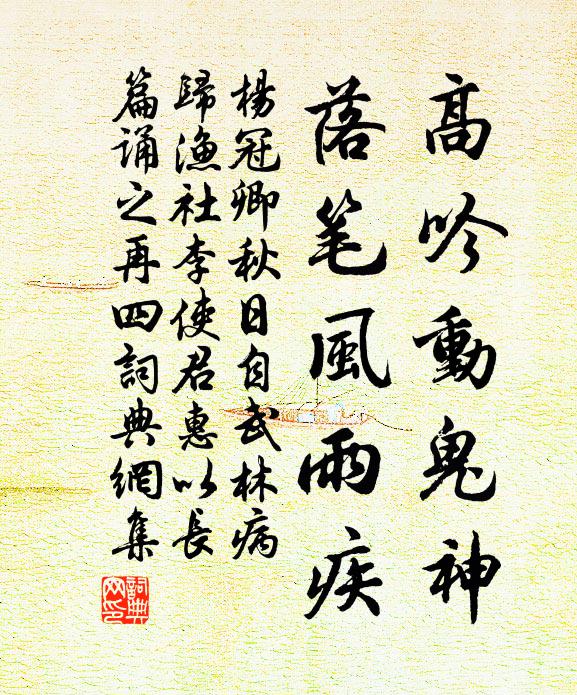 高吟動鬼神
落笔風雨疾
楊冠卿秋日自武林病
歸漁社李使君惠以長
篇诵之再四詞典網集
詞典
网印